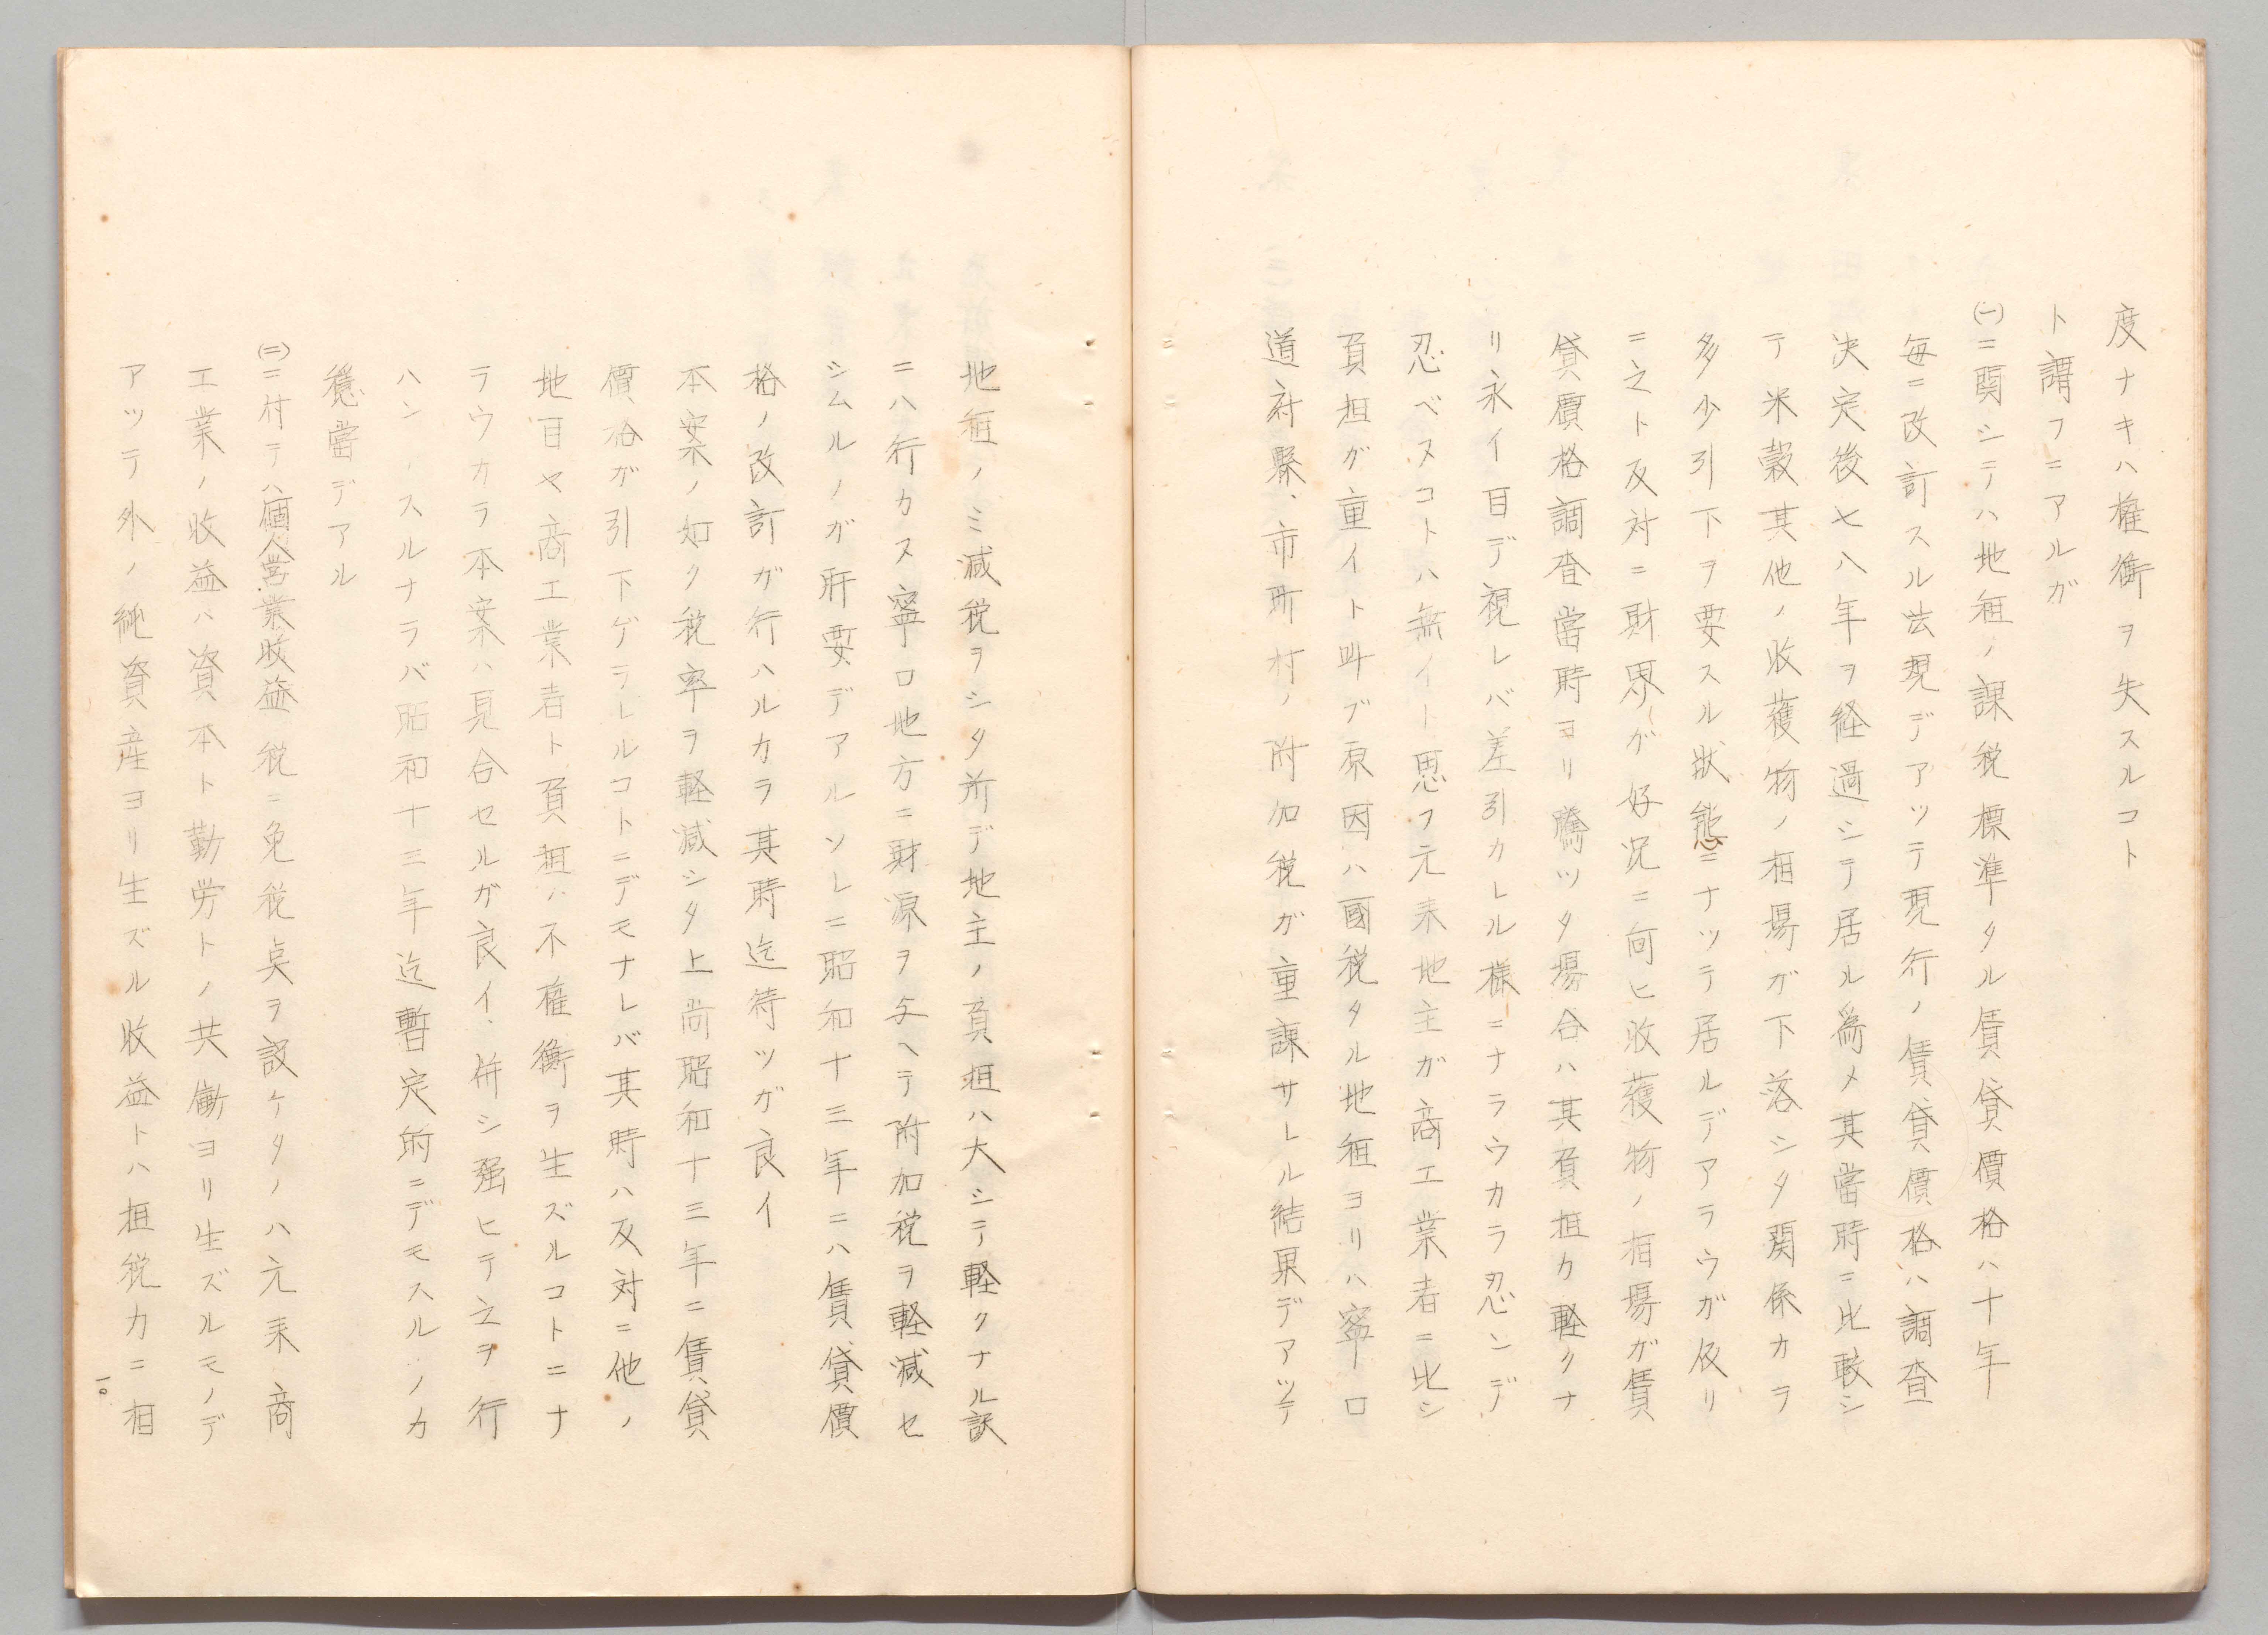 度ナキハ権衡ヲ失スルコト
ト謂フニアルガ
(一)ニ関シテハ地租ノ課税標準タル賃貸價格ハ十年
毎ニ改訂スル法現デアツテ現行ノ賃貸價格ハ調査
决定後七八年ヲ経過シテ居ル為メ其當時ニ比較シ
テ米穀其他ノ收穫物ノ相場ガ下落シタ関係カラ
多少引下ヲ要スル状態ニナツテ居ルデアラウガ仮リ
ニ之ト反対ニ財界ガ好况ニ向ヒ收穫物ノ相場ガ賃
貸價格調査當時ヨリ騰ツタ場合ハ其負担カ軽クナ
リ永イ目デ視レバ差引カレル様ニナラウカラ忍ンデ
忍ベヌコトハ無イト思フ元来地主ガ商工業者ニ比シ
負担ガ重イト叫ブ原因ハ國税タル地租ヨリハ寧ロ
道府縣、市町村ノ附加税ガ重課サレル結果デアツテ
地租ノミ減税ヲシタ所デ地主ノ負担ハ大シテ軽クナル訳
ニハ行カヌ寧ロ地方ニ財源ヲ与ヘテ附加税ヲ軽減セ
シムルノガ肝要デアルソレニ昭和十三年ニハ賃貸價
格ノ改訂ガ行ハルカラ其時迄待ツガ良イ
本案ノ如ク税率ヲ軽減シタ上尚昭和十三年ニ賃貸
價格ガ引下ゲラレルコトニデモナレバ其時ハ反対ニ他ノ
地目ヤ商工業者ト負担ハ不権衡ヲ生ズルコトニナ
ラウカラ本案ハ見合セルガ良イ、併シ强ヒテ之ヲ行
ハントスルナラバ昭和十三年迄暫定的ニデモスルノカ
穏當デアル
(二)ニ付テハ個人営業收益税ニ免税点ヲ設ケタノハ元来商
工業ノ收益ハ資本ト勤労トノ共働ヨリ生ズルモノデ
アツテ外ノ純資産ヨリ生ズル收益トハ担税力ニ相
一〇